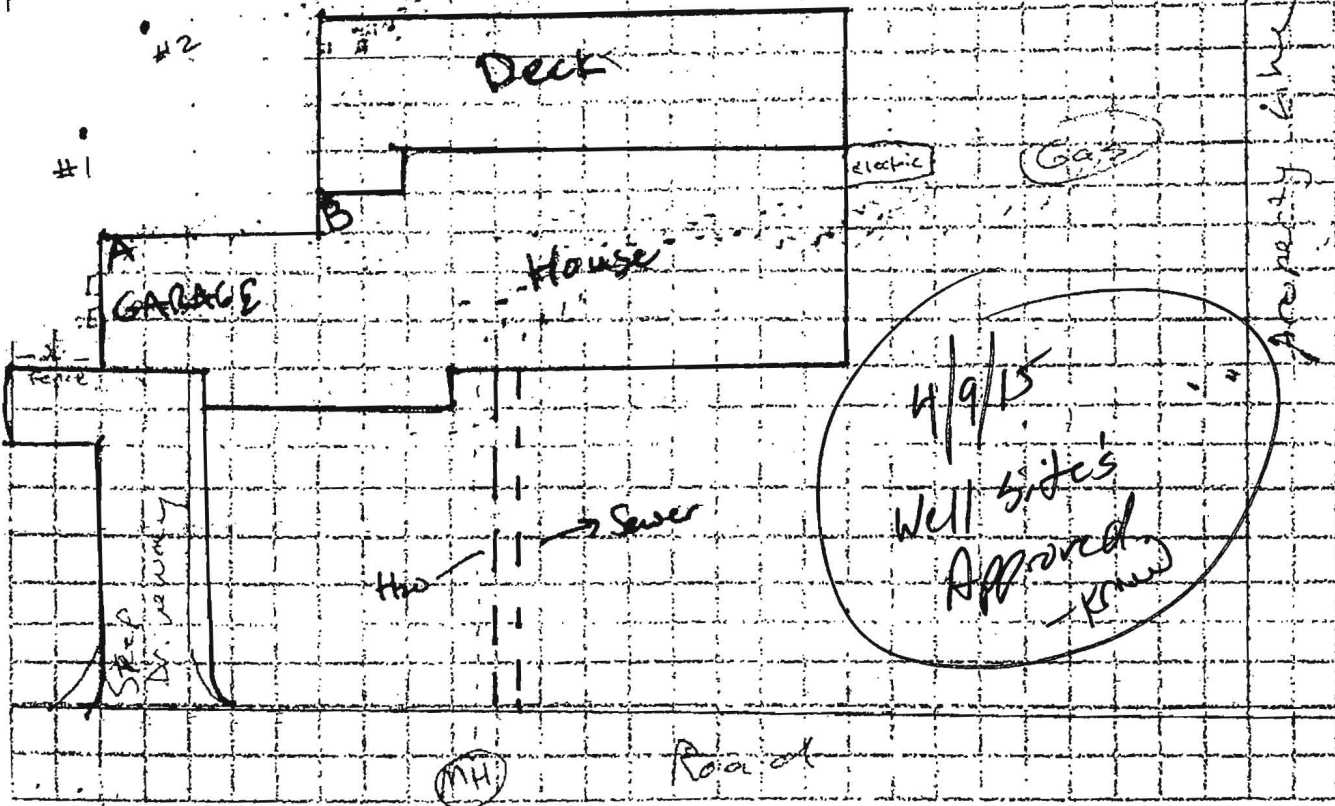 #2
Deck
#1
electric
Gas
Property line
A
B
House
GARAGE
Fence
4/9/15
Well Site's
Approved
Sewer
H2O
Steep
Driveway
MH
Road